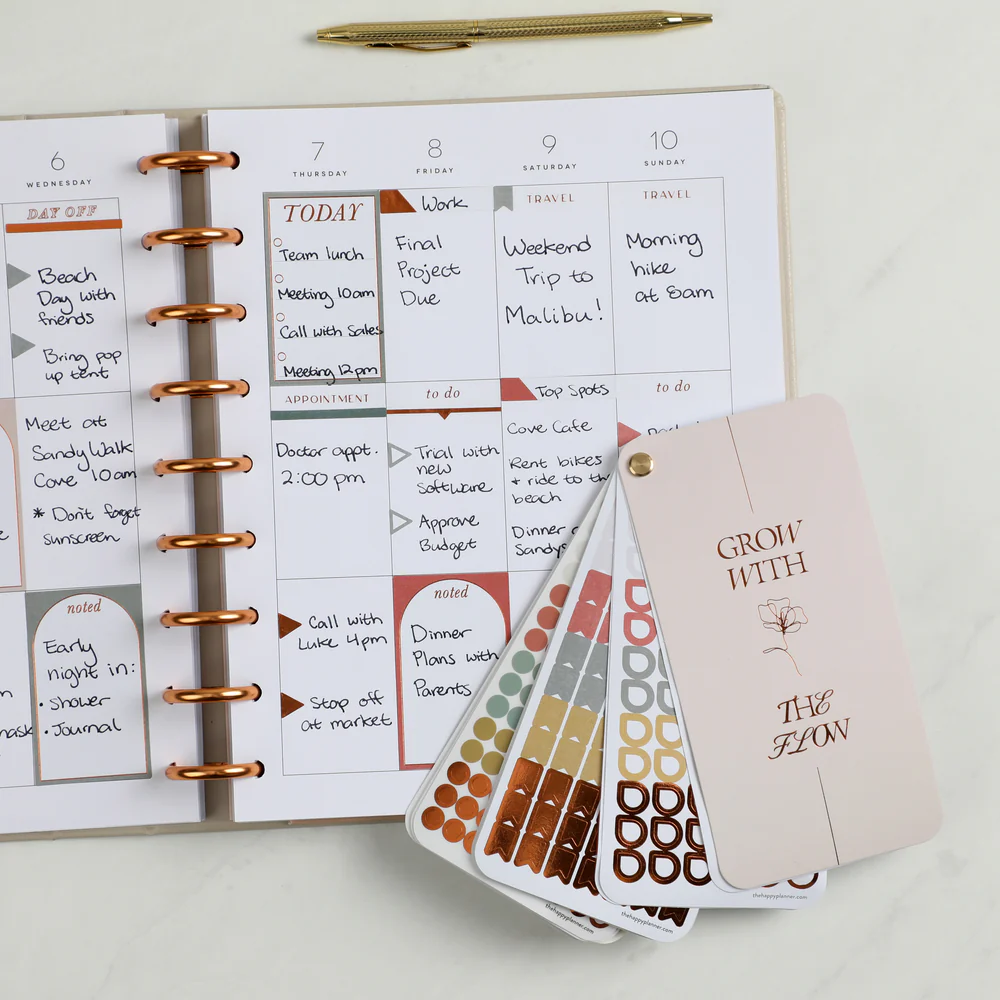 6
WEDNESDAY
DAY OFF
Beach
Day with
friends
Bring pop
up tent
Meet at
Sandy Walk
Cove 10am
* Don't forget
sunscreen
noted
Early
night in:
• Shower
• Journal
7
THURSDAY
TODAY
Team lunch
Meeting 10am
Call with Sales
Meeting 12pm
APPOINTMENT
Doctor appt.
2:00 pm
Call with
Luke 4pm
Stop off
at market
8
FRIDAY
Work
Final
Project
Due
to do
Trial with
new
Software
Approve
Budget
noted
Dinner
Plans with
Parents
9
SATURDAY
TRAVEL
Weekend
Trip to
Malibu!
Top Spots
Cove Cafe
Rent bikes
+ ride to the
beach
Dinner
Sandys
10
SUNDAY
TRAVEL
Morning
hike
at 8am
to do
GROW
WITH
THE
FLOW
thehappyplanner.com
thehappyplanner.com
thehappyplanner.com